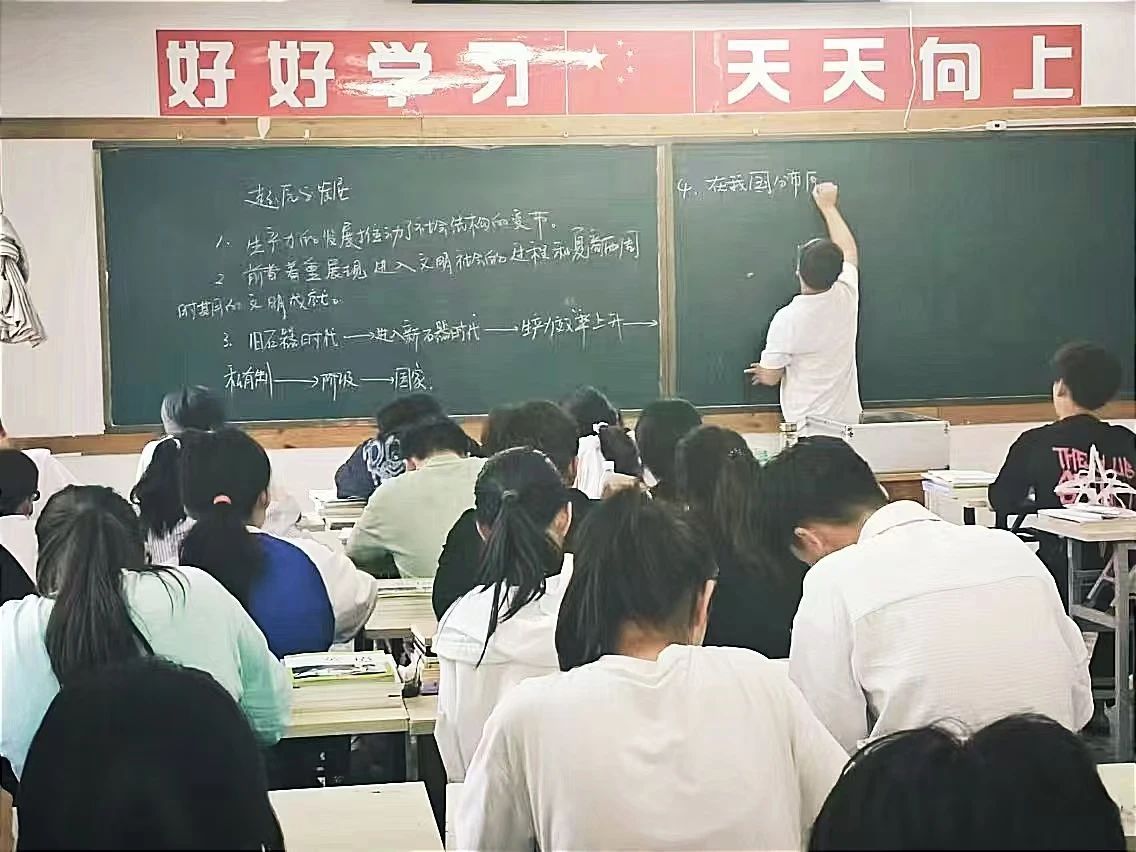 好好学习 天天向上
起源与发展
1. 生产力的发展推动了社会结构的变节。
2 前者着重展现进入文明社会的过程和夏商西周
时期的文明成就。
3. 旧石器时代→进入新石器时代→生产力效率上升→
私有制→阶级→国家.
4. 在我国分布
THE